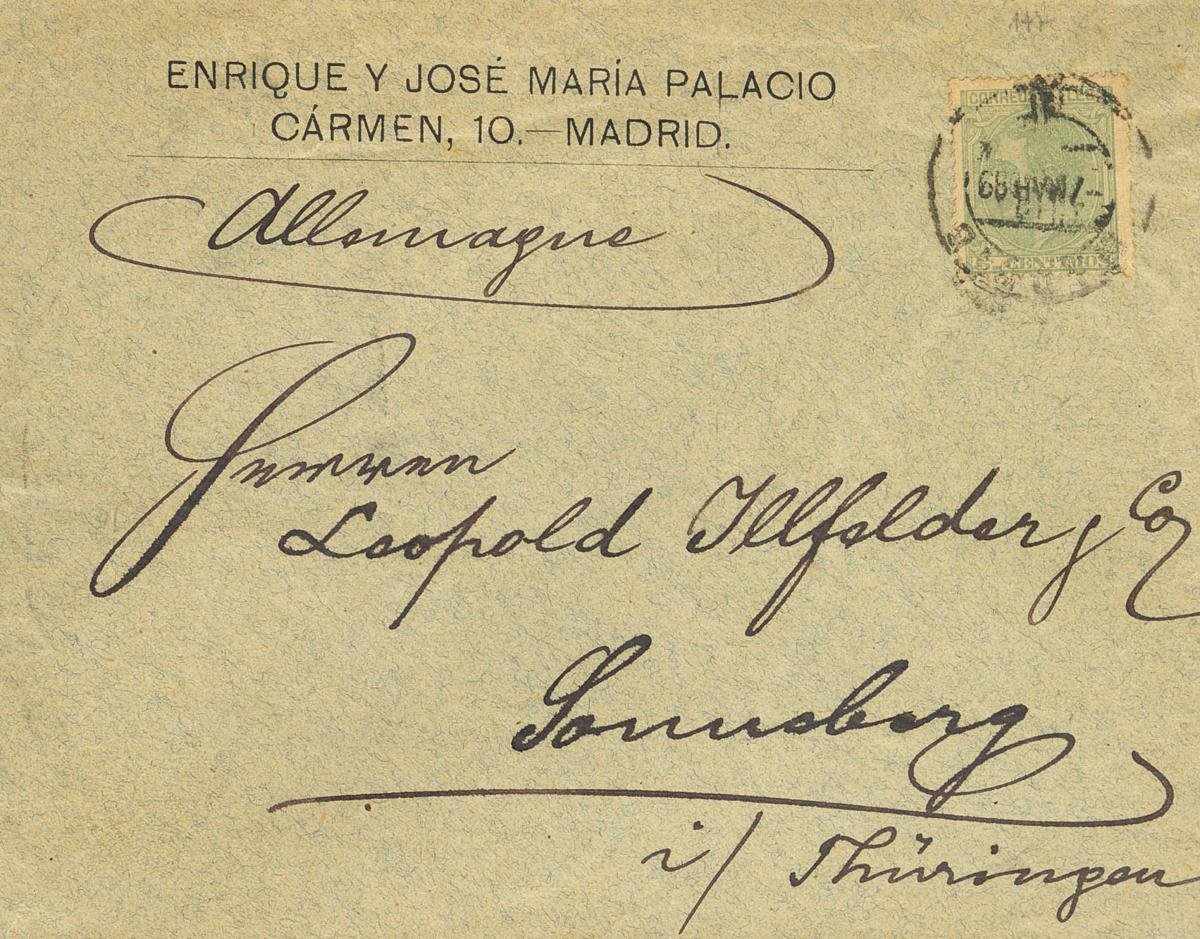 ENRIQUE Y JOSÉ MARÍA PALACIO
CÁRMEN, 10.—MADRID.
CORREO
7 MAR 89
5 CENTIMOS
Allemagne
Herren
Leopold Illfelder y Co
Sonneberg
i/ Thüringen